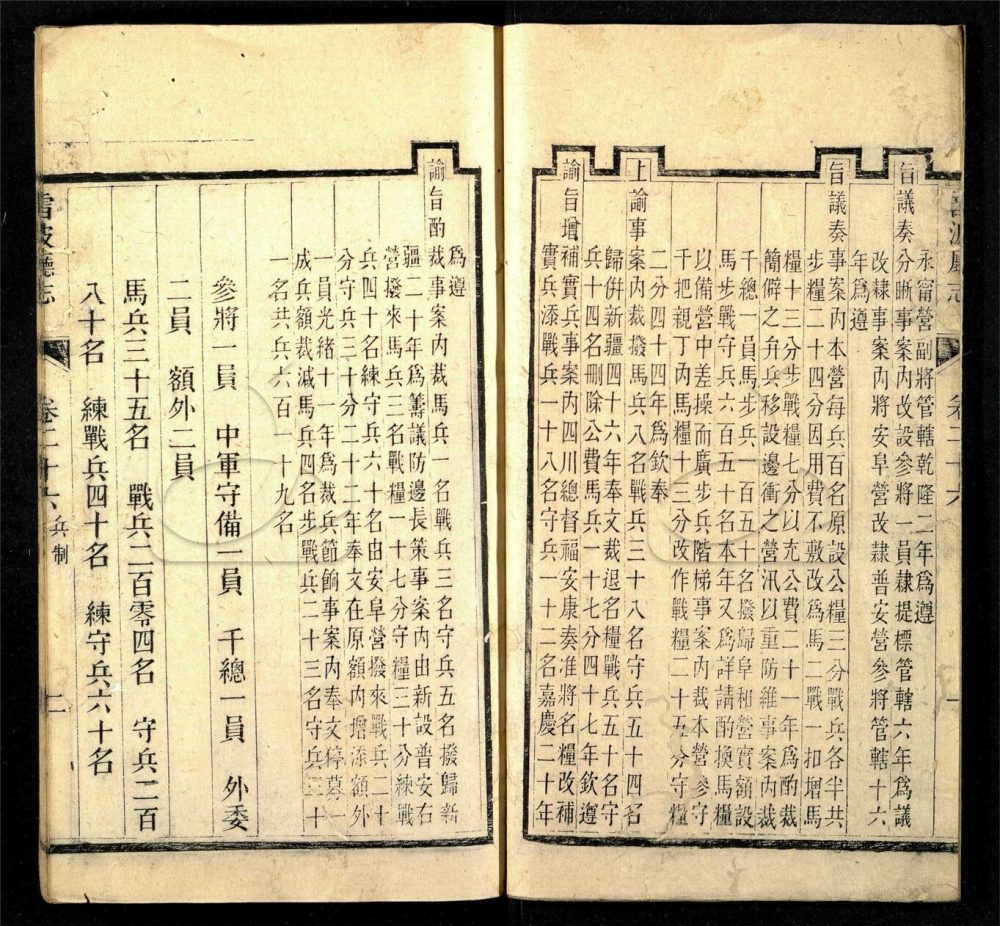 雷波廳志 卷二十六 一
永甯營副將管轄乾隆二年為遵
旨議奏分晰事案內改設參將一員隸提標管轄六年為議
改隸事案內將安阜營改隸普安營參將管轄十六
年為遵
旨議奏事案內本營每兵百名原設公糧三分戰兵各半共
步糧二十四分因用費不敷改為馬二戰一扣增馬
糧十三分步戰糧七分以充公費二十一年為酌裁
簡僻之弁兵移設邊衝之營汛以重防維事案內裁
千總一員馬步兵一百五十名撥歸阜和營實額設
馬步戰守兵六百五十名本年又為詳請酌換馬糧
以備營中差操而廣步兵階梯事案內裁本營參守
千把親丁內馬糧十三分改作戰糧二十五分守糧
二分四十四年為欽奉
上諭事案內裁撥馬兵八名戰兵三十八名守兵五十四名
歸併新疆四十六年奉文裁退名糧戰兵五十名守
兵十四名刪除公費馬兵一十七分四十七年欽遵
諭旨增補實兵事案內四川總督福安康奏准將名糧改補
實兵添戰兵一十八名守兵一十二名嘉慶二十年
為遵
諭旨酌裁事案內裁馬兵一名戰兵三名守兵五名撥歸新
疆二十年為籌議防邊長策事案內由新設普安右
營撥來馬兵三名戰糧一十七分守糧三十分練戰
兵四十名練守兵六十名由安阜營撥來戰兵二十
分守兵三十分二十二年奉文在原額內增添額外
一員光緒十一年為裁兵節餉事案內奉文停募一
成兵額裁減馬兵四名步戰兵二十三名守兵三十
一名共兵六百一十九名
參將一員 中軍守備一員 千總一員 外委
二員 額外二員
馬兵三十五名 戰兵二百零四名 守兵二百
八十名 練戰兵四十名 練守兵六十名
雷波廳志 卷二十六 兵制 二